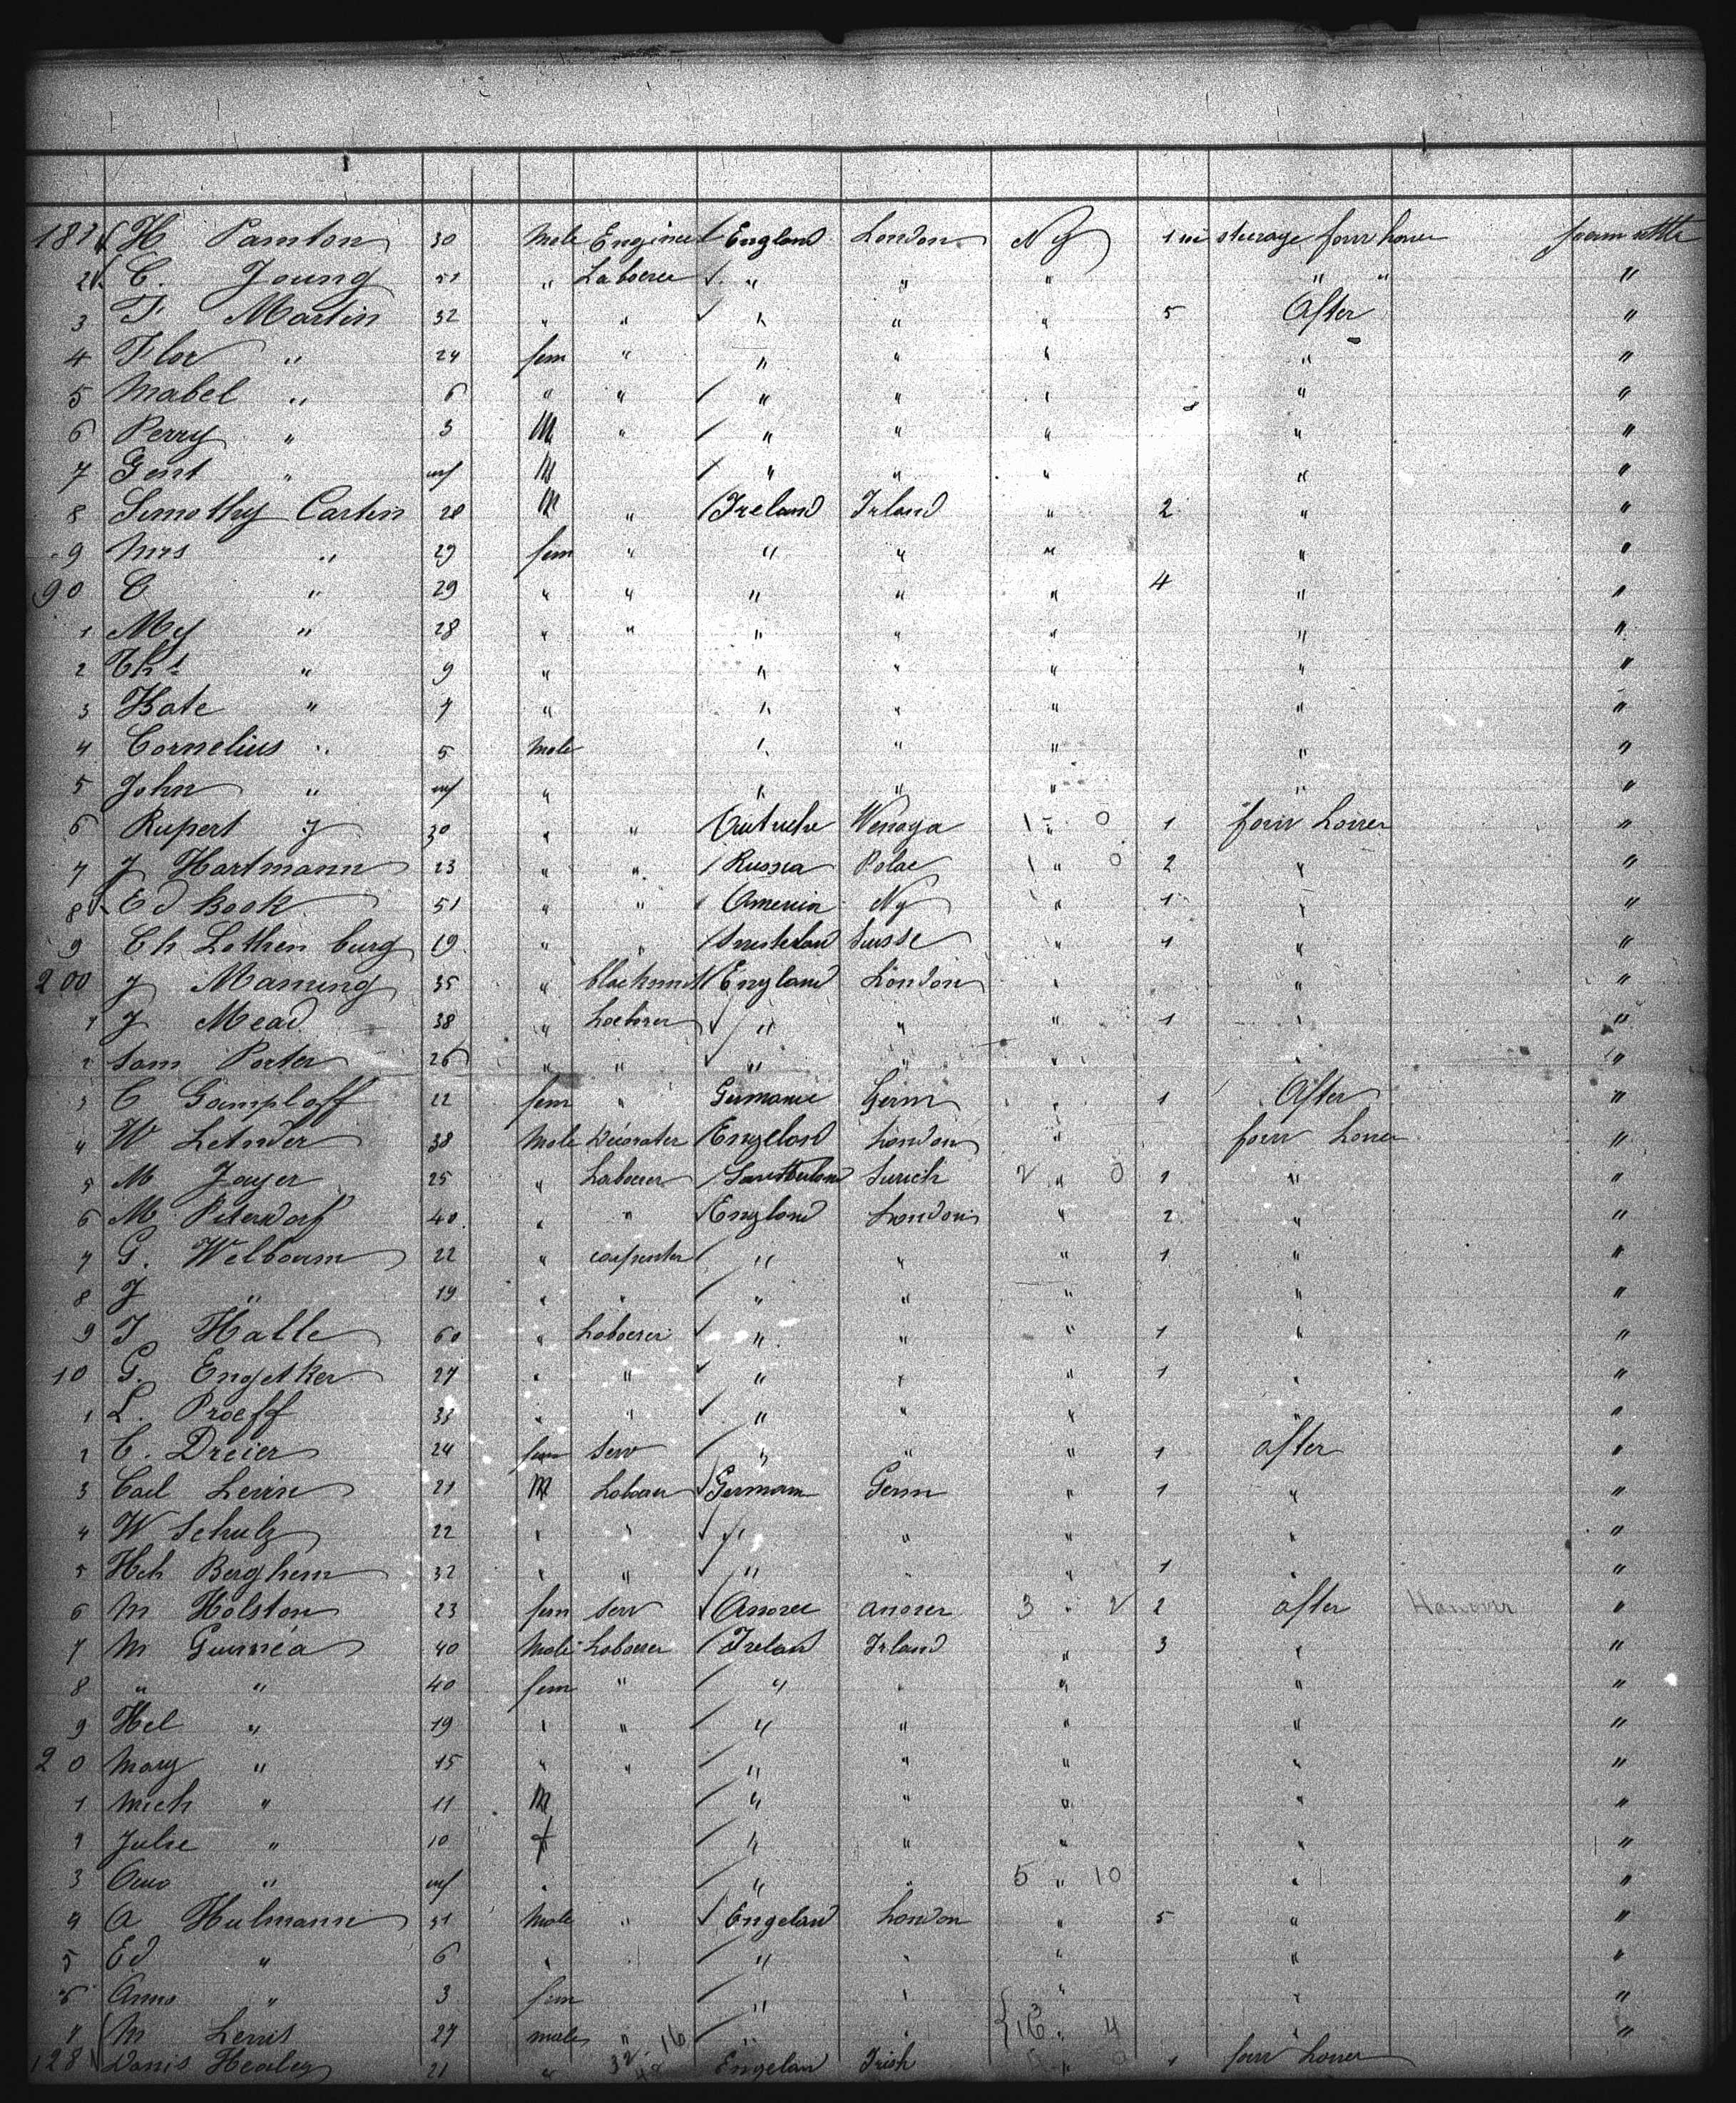 181 H Painton 30 Male Engineer England London NY 1 in steerage forw houer
2 C. Young 51 " Laboerer " " " " "
3 F Martin 32 " " " " " 5 After "
4 Flor " 24 fem " " " " " "
5 Mabel " 6 " " " " " " "
6 Perry " 3 M " " " " " "
7 Gent " inf M " " " " "
8 Timothy Carten 28 M " Ireland Irland " 2 " "
9 Mrs " 29 fem " " " " " "
90 C " 29 " " " " " 4 " "
1 My " 28 " " " " " " "
2 Chs " 9 " " " " " "
3 Kate " 7 " " " " " "
4 Cornelius " 5 Male " " " " "
5 John " inf " " " " " "
6 Rupert J 30 " " 1 " 0 1 forw houer "
7 J Hartmann 23 " " Russia Polac 1 " 0 2 " "
8 Ed Book 51 " " America Ny " 1 " "
9 Ch Lothen burg 19 " " Switerland Suisse " 1 " "
200 J Manning 35 " blacksmit England London " " "
1 J Mead 38 " Loeborer " " " 1 " "
2 Sam Porter 26 " " " " " " "
3 C Gamploff 22 fem " Germanie Germ " 1 After "
4 W Letnder 38 Male Decorater Engeland London " forw houer "
5 M Jayer 25 " Laboerer Switterland Surich 2 " 0 1 " "
6 M Petersdorf 40 " " England London " 2 " "
7 G. Welbourm 22 " carpenter " " " 1 " "
8 J " 19 " " " " " " "
9 J Halle 60 " Laboerer " " " 1 " "
10 G. Engetker 27 " " " " " 1 " "
1 L. Proeff 33 " " " " " " "
2 C. Dreier 24 fem Serv " " " 1 after "
3 Carl Levin 21 M Laboerer German Germ " 1 " "
4 W Schulz 22 " " " " " " "
5 Hch Berghem 32 " " " " " 1 " "
6 M Holston 23 fem Serv Anorer anorer 3 " 2 2 after Hanover "
7 M Guinéa 40 Male Laboerer Irelan Irland " 3 " "
8 " " 40 fem " " " " " "
9 Hel " 19 " " " " " " "
20 Mary " 15 " " " " " " "
1 Mich " 11 M " " " " "
2 Julie " 10 f " " " " "
3 " inf " " " 5 " 10 " "
4 A Hulmann 31 Male " Engeland London " 5 " "
5 Ed " 6 " " " " " "
6 Anna " 3 fem " " " " "
7 M Lewis 27 male " 16 " " 16 " 4 " "
128 Danis Healey 21 " 32 48 Engelan Irish " 0 1 forw houer